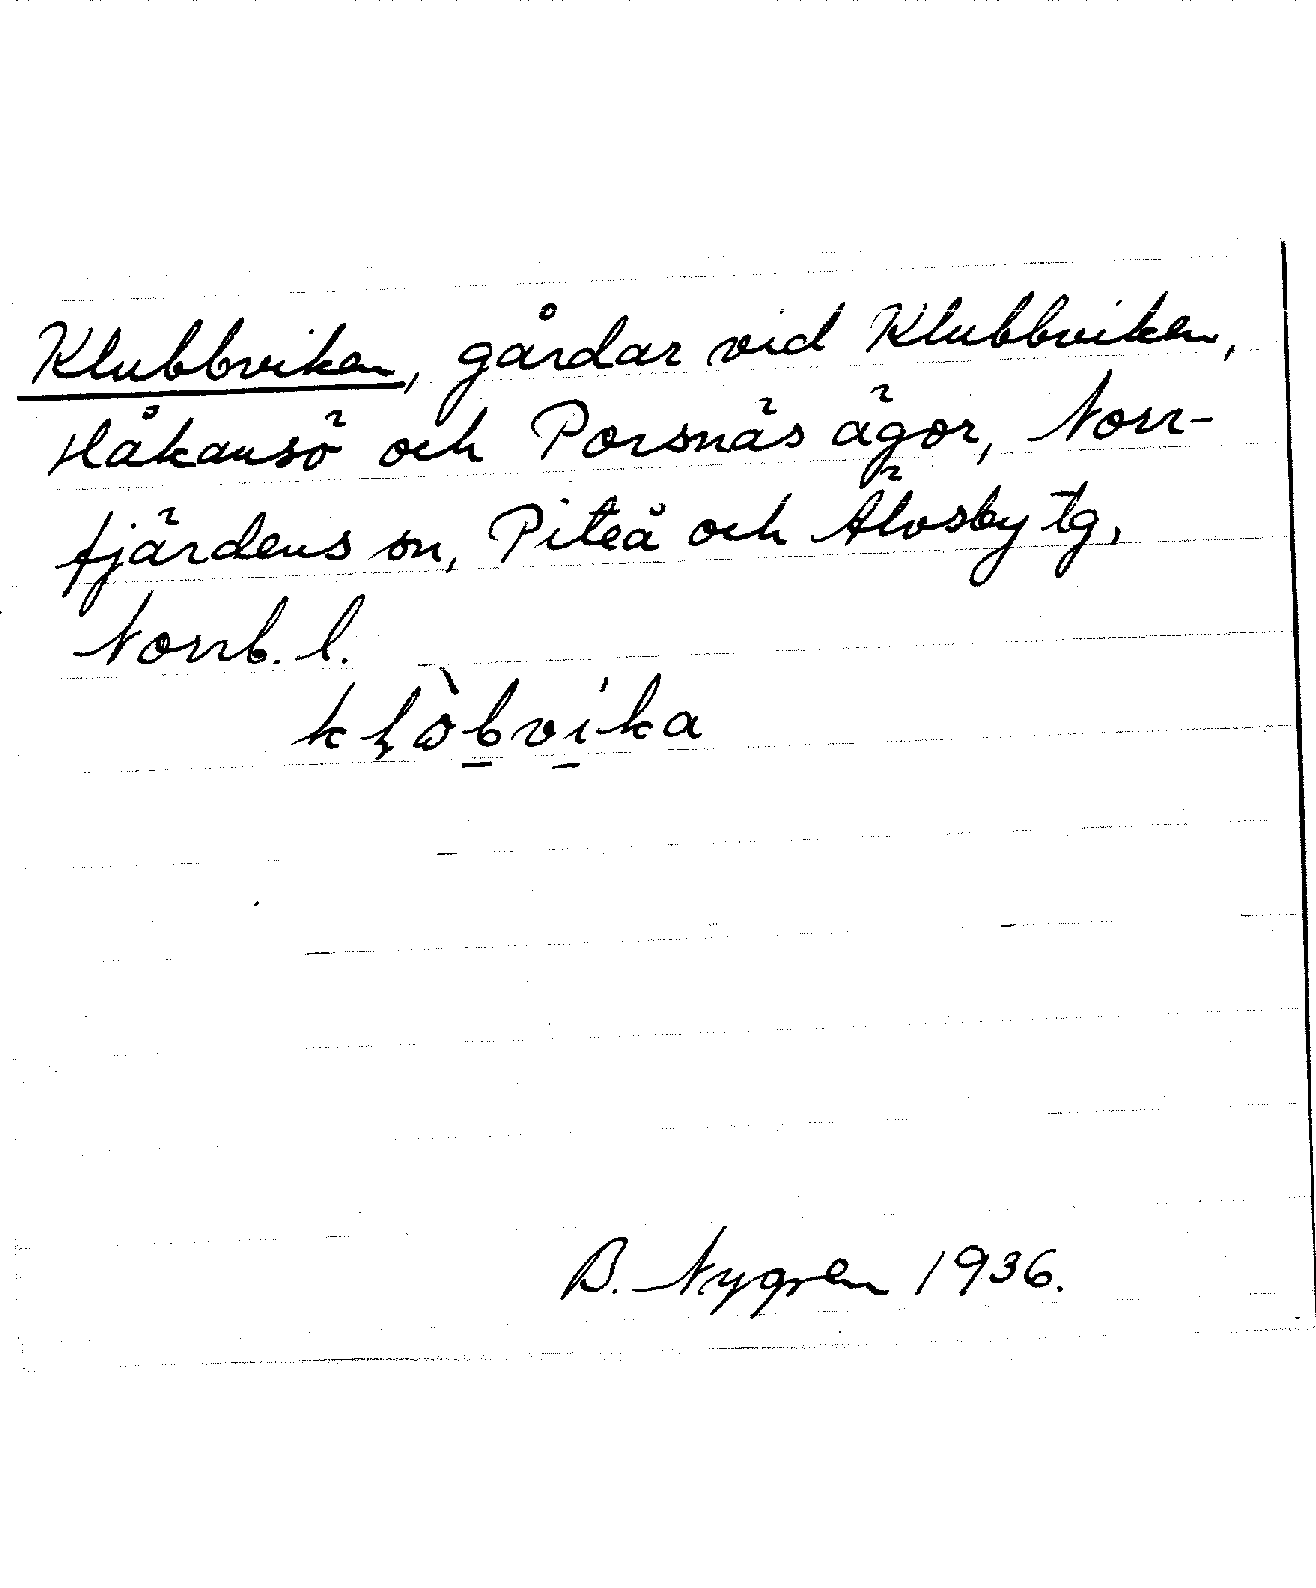 Klubbviken, gårdar vid Klubbviken,
Håkansö och Porsnäs ägor, Norr-
fjärdens sn, Piteå och Älvsby tg,
Norrb. l.
kl̥ɷ̀b̲vi̲̍ka
B. Nygren 1936.